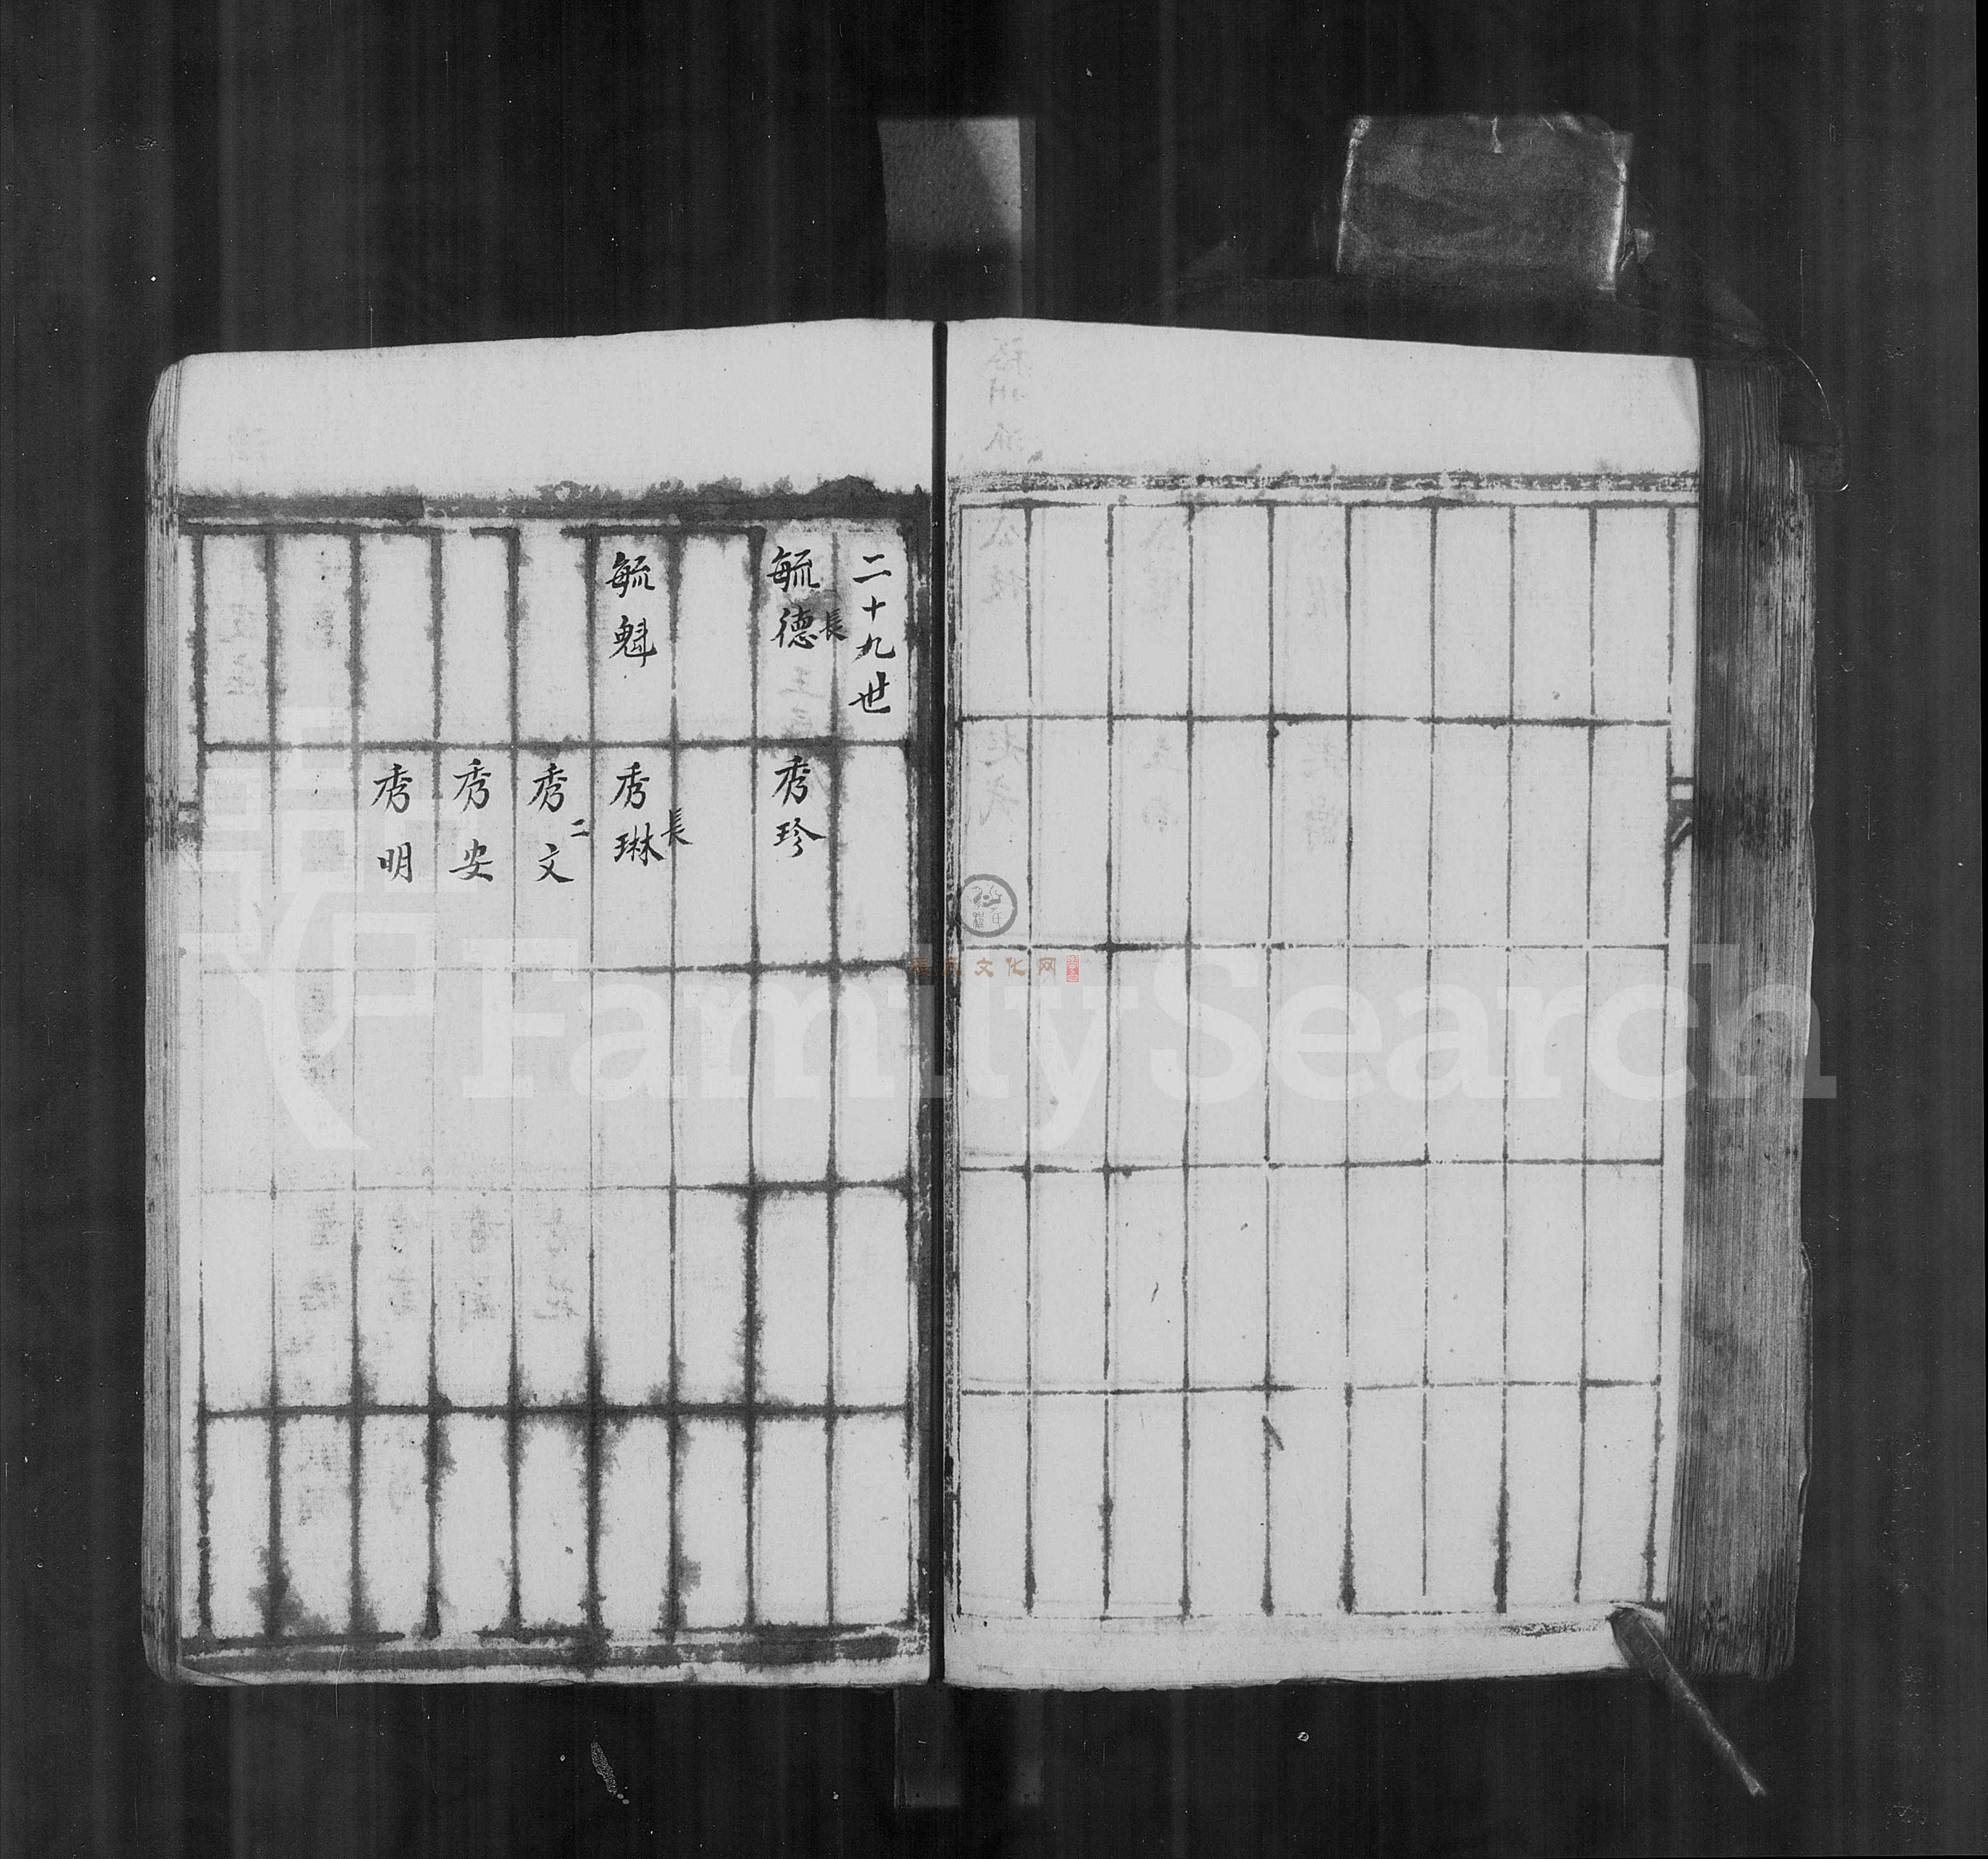 二十九世
毓德
長
秀珍
毓魁
秀琳
長
秀文
二
秀安
秀明
FamilySearch
文化网